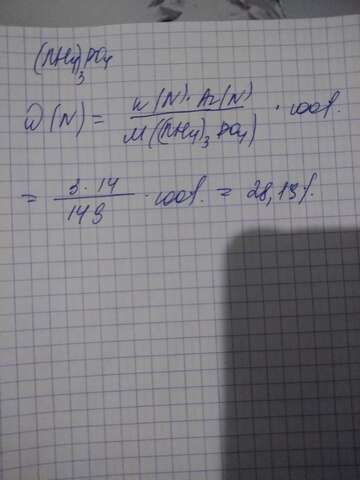 (NH4)3PO4
ω(N) = n(N) · Ar(N) / M((NH4)3PO4) · 100%
= 3 · 14 / 149 · 100% = 28,19%